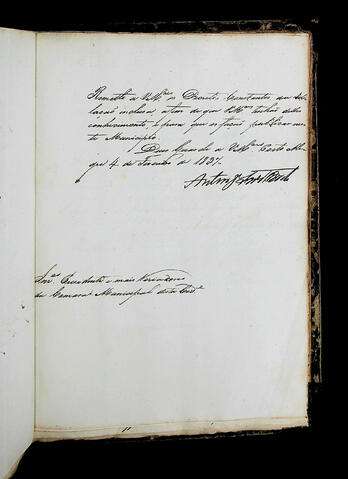 Remetto a VM.ces os Decretos Constantes da Rel
lação inclusa a fim de que VM.ces tenhão delles
conhecimento, e para que os fação publicar nes-
te Municipio.
Deos Guarde a VM.ces Porto Ale
gre 4 de Fevereiro de 1837.
Snr.es Presidente e mais Vereadores
da Camara Municipal desta Cid.e